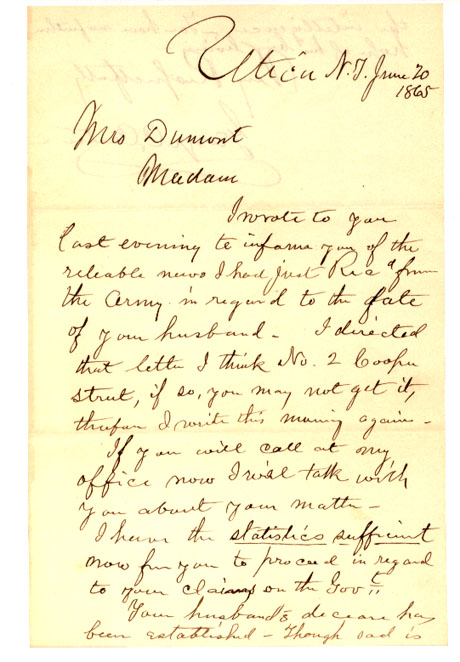 Utica N.Y. June 20
1865
Mrs Dumont
Madam
I wrote to you
last evening to inform you of the
reliable news I had just Recd from
the Army in regard to the fate
of your husband - I directed
that letter I think No. 2 Cooper
street, if so, you may not get it,
therefore I write this morning again -
If you will call at my
office now I will talk with
you about your matter -
I have the statistics sufficient
now for you to proceed in regard
to your claims on the Govt.
Your husbands decease has
been established - Though sad is